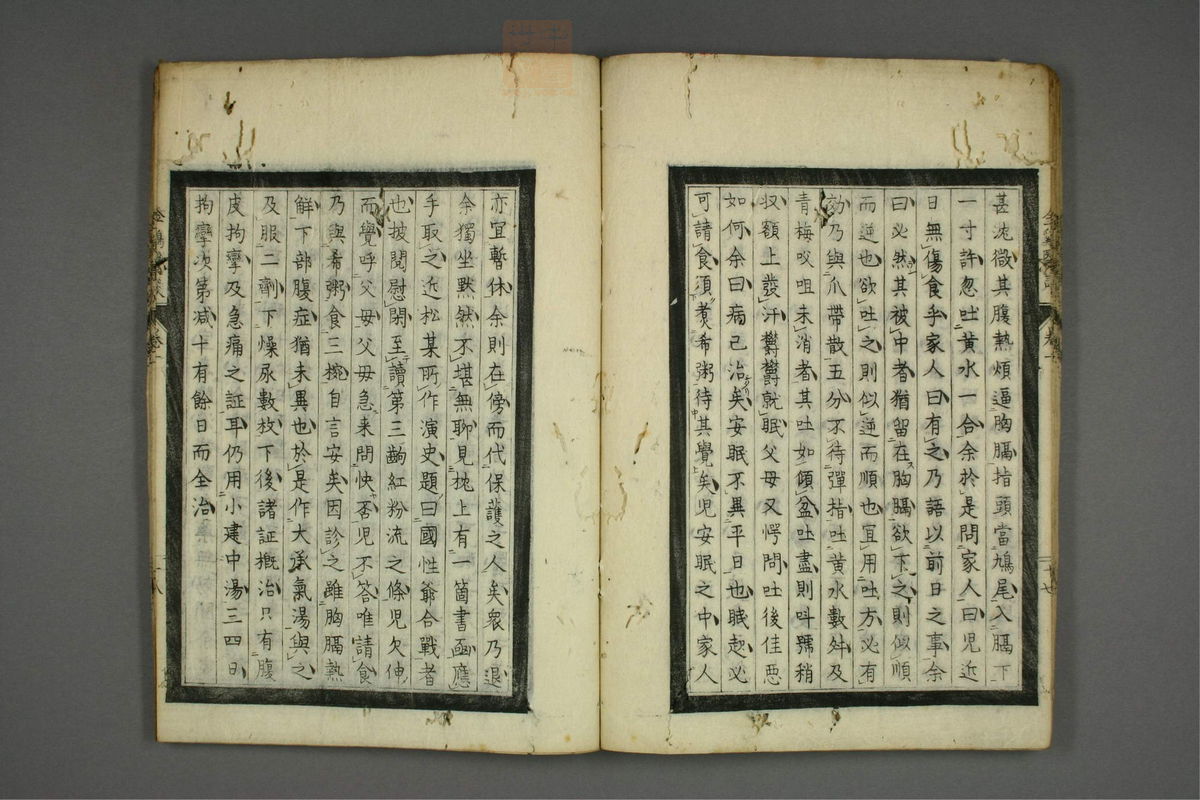 甚沈微其腹熱煩逼胸膈指頭當鳩尾入膈下
一寸許忽吐黄水一合余於是問家人曰児近
日無傷食乎家人曰有之乃語以前日之事余
曰必然其被中者猶留在胸膈欲下之則似順
而逆也欲吐之則似逆而順也宜用吐方必有
効乃與爪蒂散五分不待彈指吐黄水數舛及
青梅咬咀未消者其吐如傾盆吐盡則呌號稍
収額上發汗欝欝就眠父母又愕問吐後佳悪
如何余曰病已治矣安眠不異平日也眠起必
可請食須煑希粥待其覺矣児安眠之中家人
亦宜暫休余則在傍而代保護之人矣衆乃退
余獨坐黙然不堪無聊見枕上有一箇書函應
手取之近松某所作演史題曰國性爺合戰者
也披閲慰閑至讀第三齣紅粉流之條児欠伸
而覺呼父母父母急来問快否児不答唯請食
乃與希粥食三椀自言安矣因診之雖胸膈熱
解下部腹症猶未異也於是作大承氣湯與之
及服二劑下燥尿數枚下後諸証概治只有腹
皮拘攣及急痛之証耳仍用小建中湯三四日
拘攣次第减十有餘日而全治